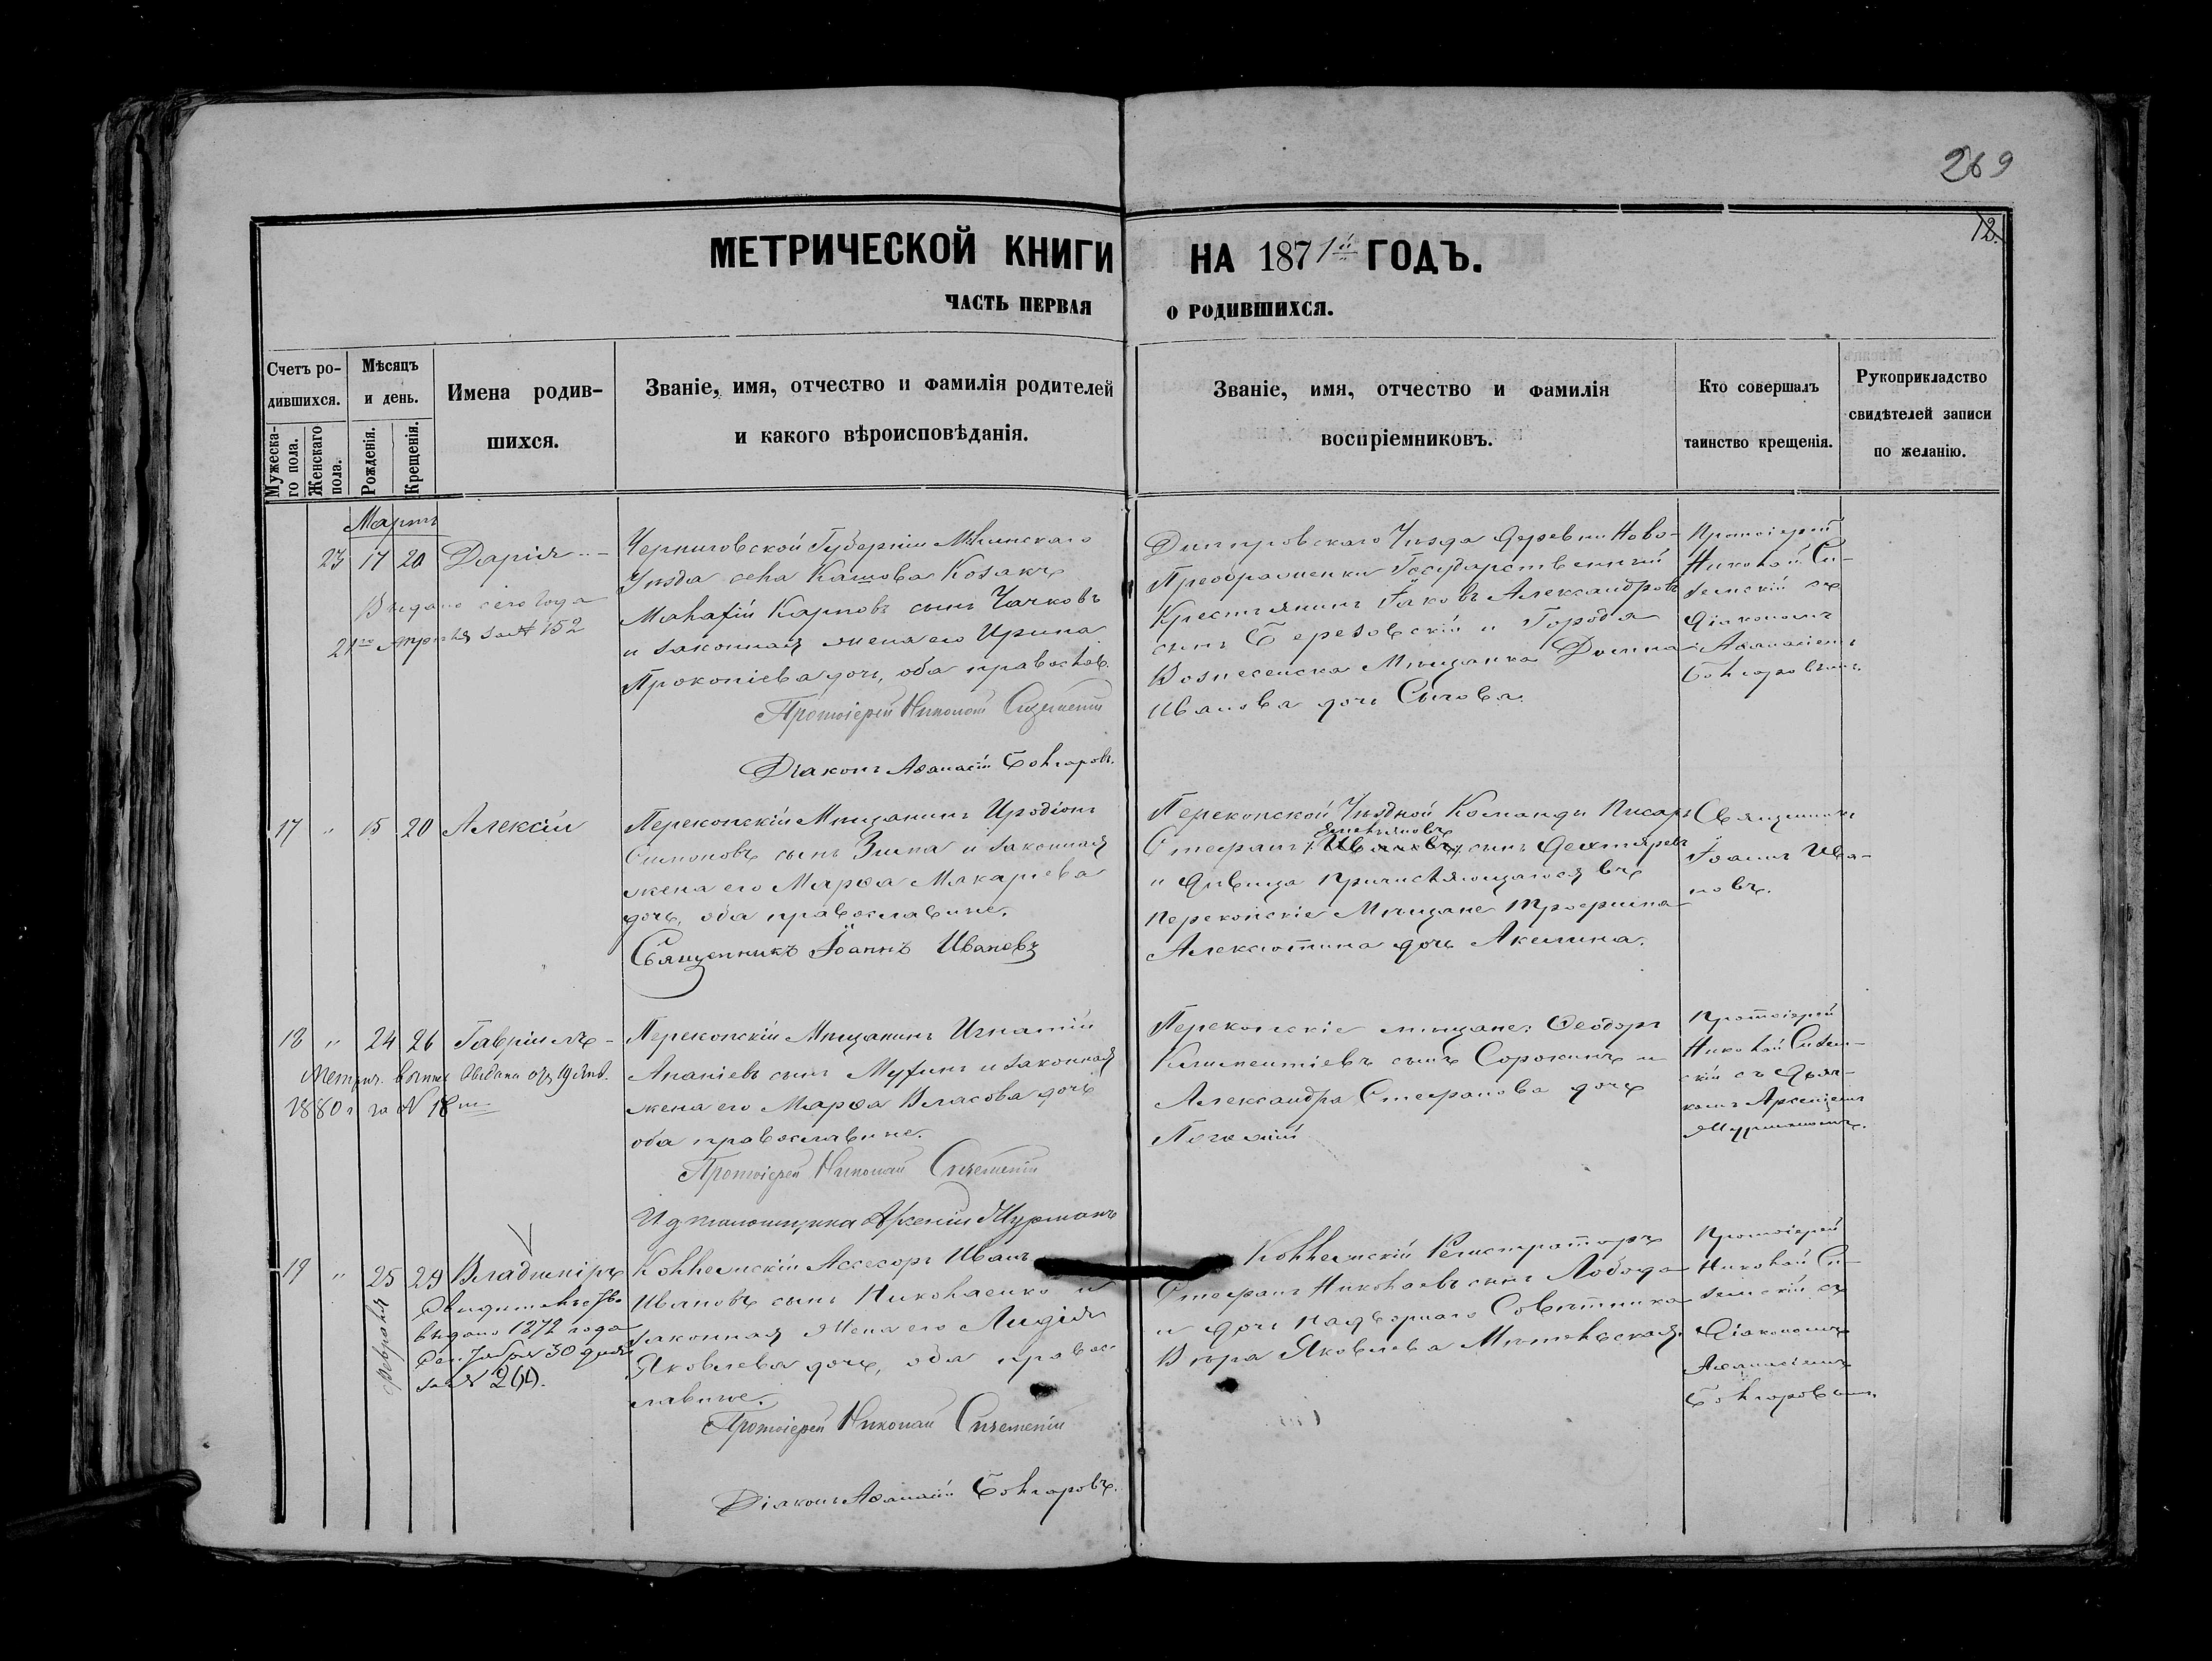 269
12.
МЕТРИЧЕСКОЙ КНИГИ НА 1871й ГОДЪ.
ЧАСТЬ ПЕРВАЯ О РОДИВШИХСЯ.
Счетъ ро-
дившихся.
Мужеска-
го пола.
Женскаго
пола.
Мѣсяцъ
и день.
Рожденія.
Крещенія.
Имена родив-
шихся.
Званіе, имя, отчество и фамилія родителей
и какого вѣроисповѣданія.
Званіе, имя, отчество и фамилія
воспріемниковъ.
Кто совершалъ
таинство крещенія.
Рукоприкладство
свидѣтелей записи
по желанію.
Мартъ
23 17 20 Дарія
Выдано сего года
21го Апрѣля за № 152
Черниговской Губерніи Мглинскаго
Уѣзда села Кашова Козакъ
Малафій Карповъ сынъ Чачковъ
и законная жена его Ирина
Прокопіева дочь, оба православ.
Протоіерей Николай Сиземскій
Діаконъ Аѳанасій Болгаровъ.
Днѣпровскаго Уѣзда деревни Ново-
Преображенки Государственный
Крестьянинъ Іаковъ Александровъ
сынъ Березовскій и Города
Вознесенска Мѣщанка Домна
Иванова дочь Сычова.
Протоіерей
Николай Си-
земскій съ
Діакономъ
Аѳанасіемъ
Болгаровымъ
17 " 15 20 Алексій
Перекопскій Мѣщанинъ Иродіонъ
Симоновъ сынъ Зима и законная
жена его Марѳа Макаріева
дочь, оба православные.
Священникъ Іоаннъ Ивановъ
Перекопской Уѣздной Команды Писарь
Емельяновъ
Стефанъ Ивановъ сынъ Дехтяревъ
и дѣвица причисляющаяся въ
Перекопскіе Мѣщане Трофимна
Алексютина дочь Акилина.
Священникъ
Іоаннъ Ива-
новъ.
18 " 24 26 Гавріилъ
1880 г за № 18
Перекопскій Мѣщанинъ Игнатій
Ананіевъ сынъ Мухинъ и законная
жена его Марѳа Власова дочь
оба православные.
Протоіерей Николай Сиземскій
И д пономарщика Арсеній Шурманъ
Перекопскіе мѣщане: Ѳеодоръ
Климентіевъ сынъ Сорокинъ и
Александра Стефанова дочь
Протоіерей
Николай Сизем-
скій съ Дьяч-
комъ Арсеніемъ
Шурманомъ.
19 " 25 29 Владиміръ
Февраля
Свидѣтельство
выдано 1872 года
Сентября 30 дня
за № 264.
Коллежскій Ассесоръ Иванъ
Ивановъ сынъ Николаенко и
законная жена его Лидія
Яковлева дочь, оба право-
славные.
Протоіерей Николай Сиземскій
Діаконъ Аѳанасій Болгаровъ.
Коллежскій Регистраторъ
Стефанъ Николаевъ сынъ Лобода
и дочь надворнаго Совѣтника
Вѣра Яковлева
Протоіерей
Николай Си-
земскій съ
Діакономъ
Аѳанасіемъ
Болгаровымъ.